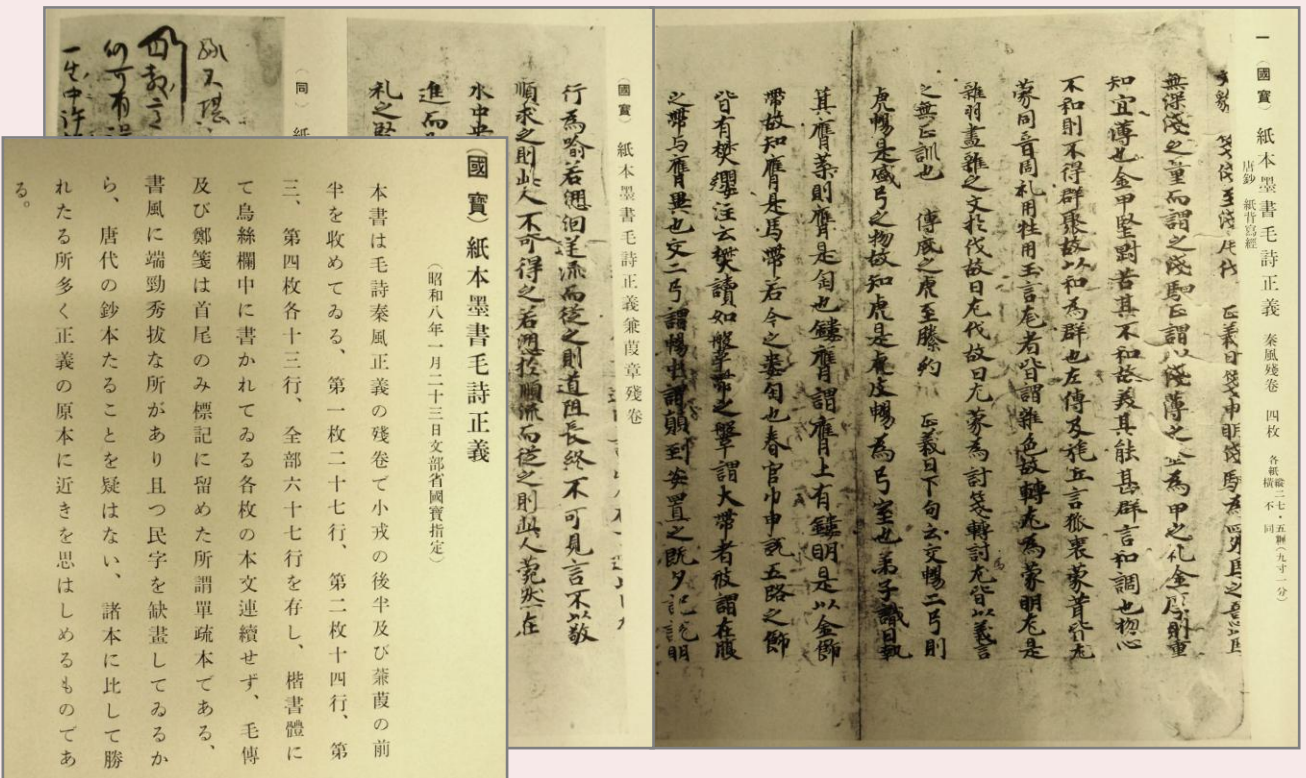 一 (國寶) 紙本墨書毛詩正義 唐鈔 紙背寫經 秦風殘卷 四枚 各紙 縱二七・五糎(九寸一分) 橫不同
無深淺之量而謂之淺駟正謂以淺薄之金為甲之札金厚則重
知宜薄也金甲堅對苦其不和故美其能甚群言和調也物心
不和則不得群聚故以和為群也左傳及旄丘言狐裘蒙茸皆尨
蒙同音周礼用牲用玉言尨者皆謂雜色故轉尨為蒙明尨是
雜羽畫雜之文於伐故曰尨伐故曰尨蒙為討箋轉討尨皆以義言
之無正訓也 傳虎之虎至縢約 正義曰下句云文暢二弓則
虎暢是盛弓之物故知虎是虎皮暢為弓室也弟子職曰執
其膺葉則膺是匈也鏤膺謂膺上有鏤明是以金飾
帶故知膺是馬帶若今之婁匈也春官巾車說五路之飾
皆有樊纓注云樊讀如鞶帶之鞶謂大帶者彼謂在腹
之帶与膺異也文二弓謂暢中謂顛到安置之既夕記說明
(國寶) 紙本墨書毛詩正義蒹葭章殘卷
行為喻若遡洄逆流而從之則道阻長終不可見言不以敬
順求之則此人不可得之若遡於順流而從之則此人菀然在
水中央
進而
礼之
(同) 紙
一生中許
(國寶) 紙本墨書毛詩正義
(昭和八年一月二十三日文部省國寶指定)
本書は毛詩秦風正義の殘卷で小戎の後半及び蒹葭の前
半を收めてゐる、第一枚二十七行、第二枚十四行、第
三、第四枚各十三行、全部六十七行を存し、楷書體に
て烏絲欄中に書かれてゐる各枚の本文連續せず、毛傳
及び鄭箋は首尾のみ標記に留めた所謂單疏本である、
書風に端勁秀拔な所があり且つ民字を缺畫してゐるか
ら、唐代の鈔本たることを疑はない、諸本に比して勝
れたる所多く正義の原本に近きを思はしめるものであ
る。